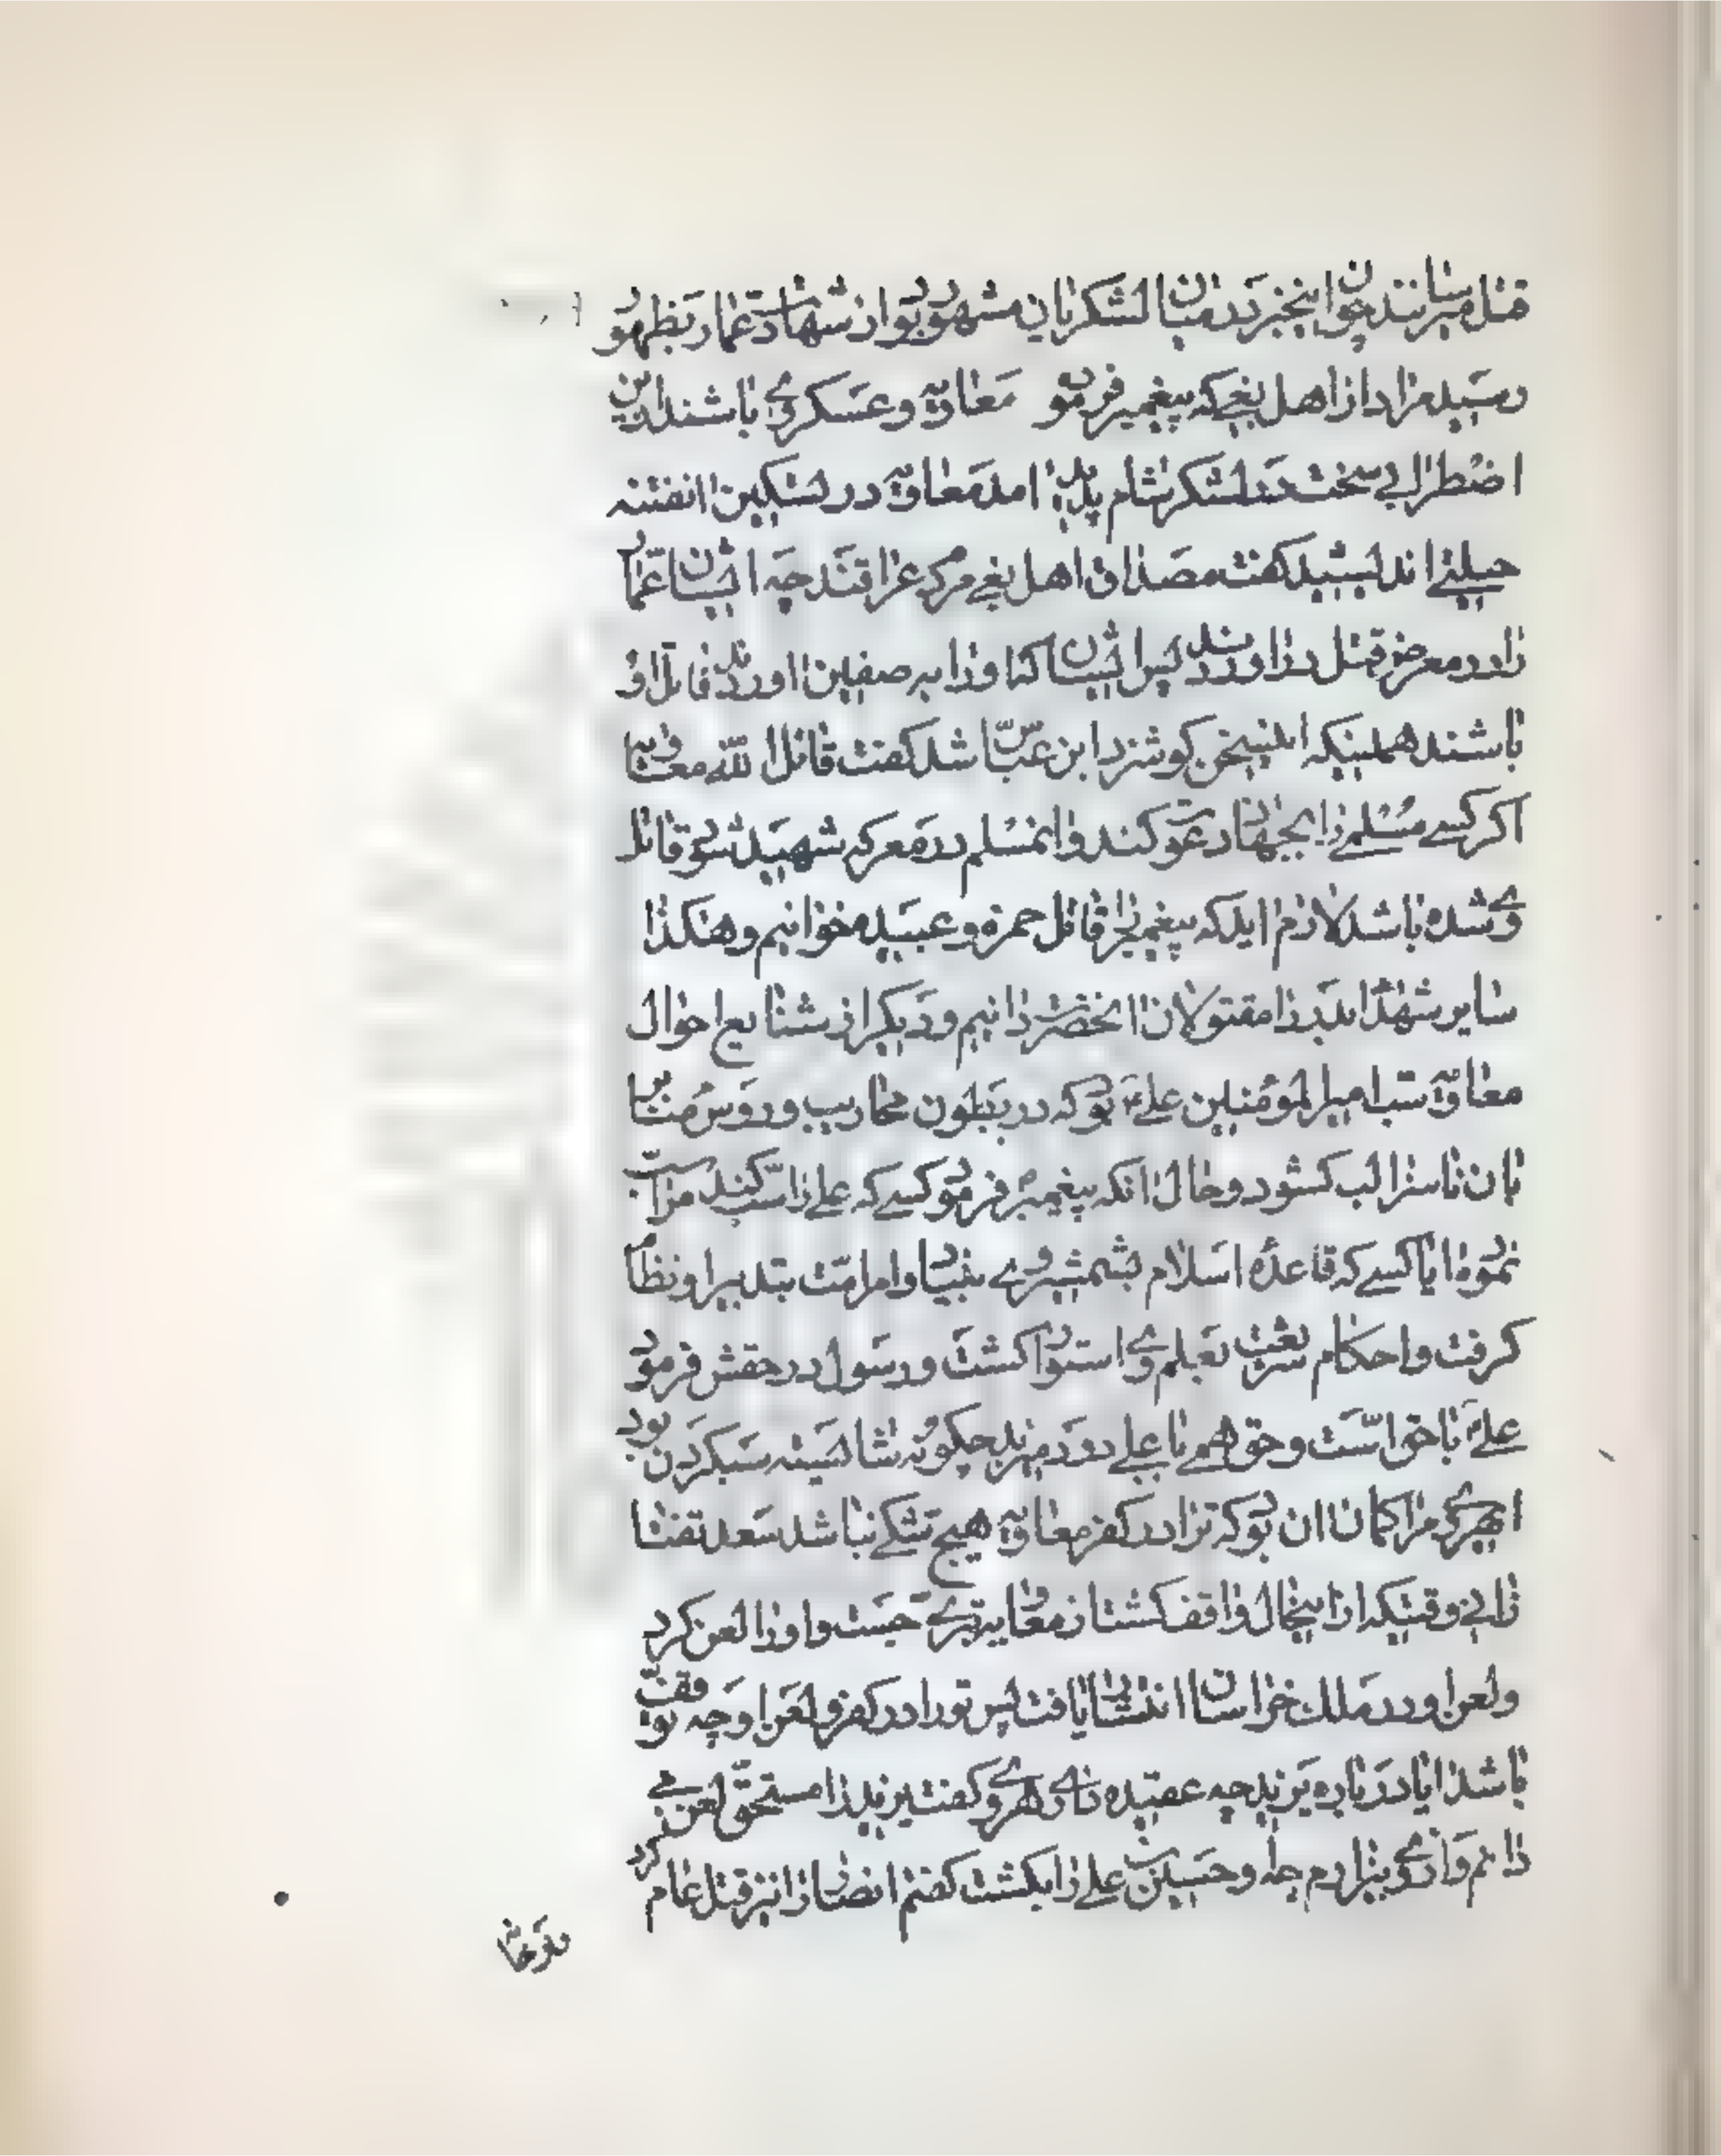 قتل میرسانند چون اینخبر در میان لشکریان مشهور بود از شهادت عمار بظهور
رسید مراد از اهل بغی که پیغمبر فرمود معاویه و عسکر وی باشند ازین
اضطرابی سخت در لشکر شام پدید امد معاویه در تسکین انفتنه
حیلتی اندیشید کفت مصداق اهل بغی مردم عراقند چه ایشان عمار
را در معرض قتل در اوردند پس ایشان که اورا به صفین اوردند قاتل او
باشند همینکه اینسخن کوشزد ابن عباس شد کفت قاتل الله معاویه
اکر کسی مسلمی را بجهاد دعوت کند و انمسلم در معرکه شهید شود قاتل
وی شده باشد لازم اید که پیغمبر را قاتل حمزه و عبیده خوانیم و هکذا
سایر شهدا بدر را مقتولان انحضرت دانیم و دیکر از شنایع احوال
معاویه سب امیرالمؤمنین علی بود که در بطون محاریب و رؤس منابر
بان ناسزا لب کشود و حال انکه پیغمبر فرمود کسی که علی را سب کند مرا سب
نموده ایا کسی که قاعده اسلام بشمشیر وی بنیاد و امر امت بتدبیر او نظام
کرفت و احکام شریعت بعلم وی استوار کشت و رسول در حقش فرمود
علی با حق است و حق هم با علی دور میزند چکونه شایسته سب کردن بود
ای هروی مرا کمان ان بود که ترا در کفر معاویه هیچ شکی نباشد سعد تفتا
زانی وقتیکه از اینحال واقف کشت از معاویه تبری جست و او را لعن کرد
و لعن او در ملک خراسان انتشار یافت پس تورا در کفر و لعن او چه توقف
باشد ایا در باره یزید چه عقیده داری هروی کفت یزید را مستحق لعن می
دانم و از وی بیزارم چه او حسین بن علی را بکشت کفتم انصار را نیز قتل عام کرد